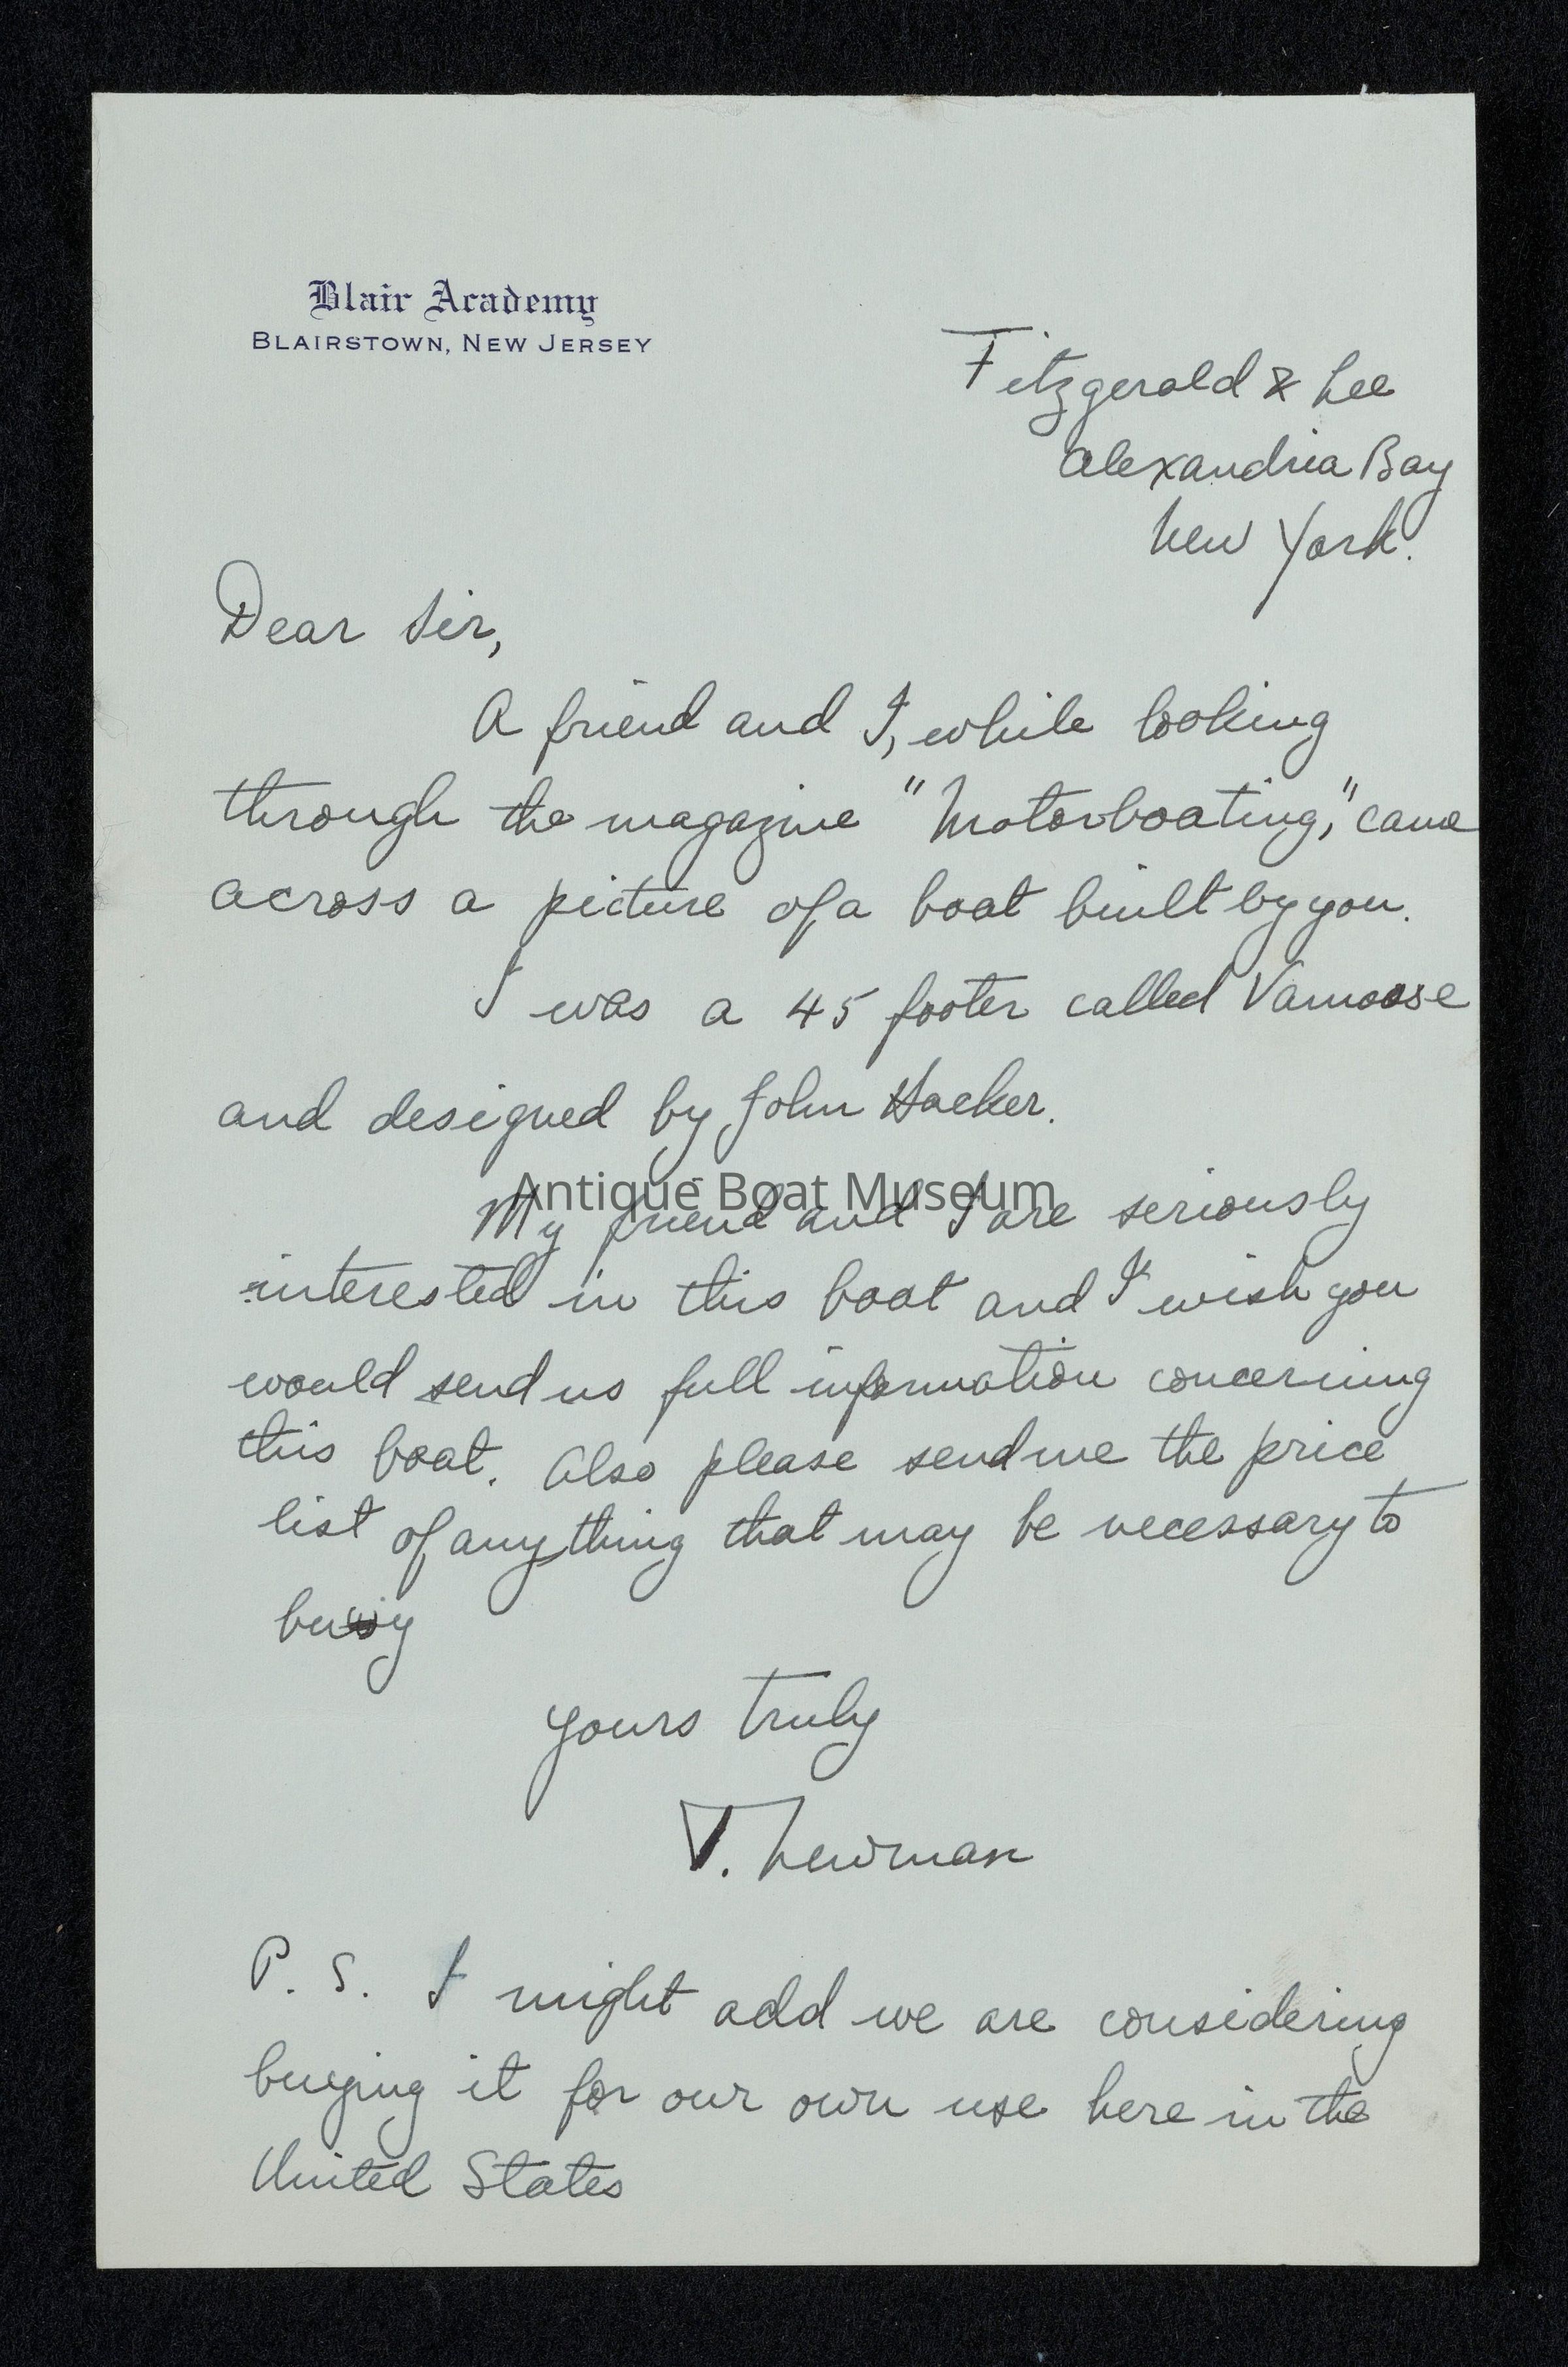 Blair Academy
BLAIRSTOWN, NEW JERSEY
Fitzgerald & Lee
Alexandria Bay
New York.
Dear Sir,
A friend and I, while looking
through the magazine "Motorboating," came
across a picture of a boat built by you.
I was a 45 footer called Vamoose
and designed by John Hacker.
Antique Boat Museum
My friend and I are seriously
interested in this boat and I wish you
would send us full information concerning
this boat. Also please send me the price
list of anything that may be necessary to
buy
yours truly
V. Newman
P. S. I might add we are considering
buying it for our own use here in the
United States